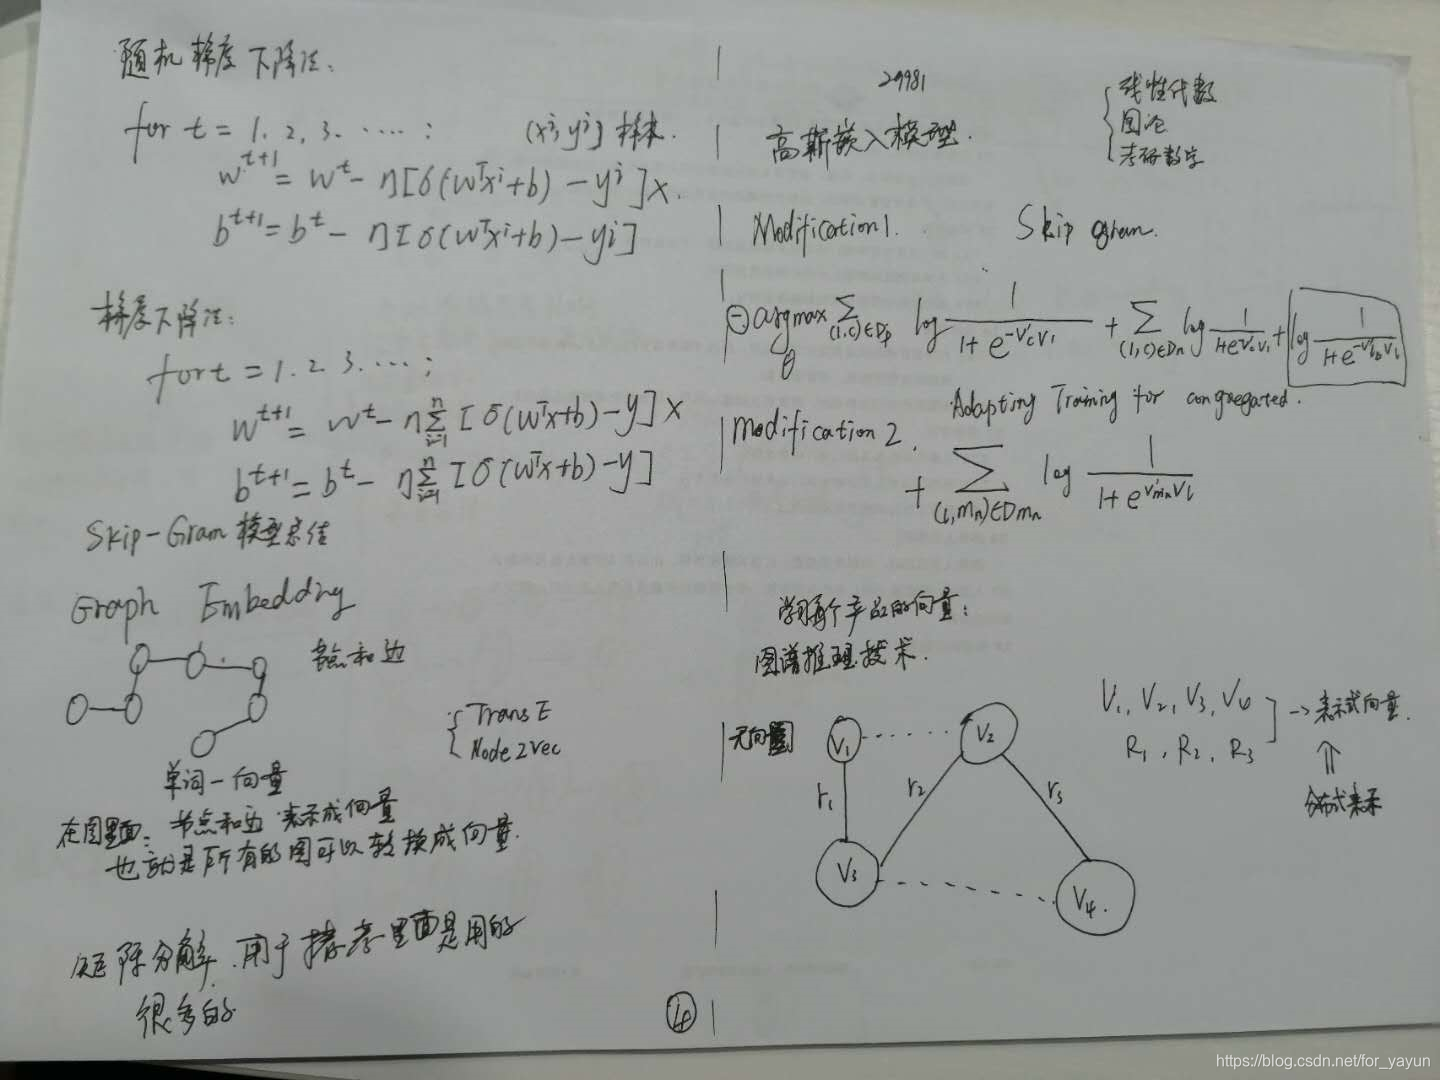 随机梯度下降法:
for t = 1. 2, 3. ..... ; (xⁱ, yⁱ) 样本.
w^{t+1} = w^t - η[σ(w^T x^i + b) - y^i]x.
b^{t+1} = b^t - η[σ(w^T x^i + b) - y^i]
梯度下降法:
for t = 1. 2 3. ....;
w^{t+1} = w^t - η∑_{i=1}^{n}[σ(w^T x + b) - y]x
b^{t+1} = b^t - η∑_{i=1}^{n}[σ(w^T x + b) - y]
Skip-Gram 模型总结
Graph Embedding
节点和边
{ TransE
Node2Vec
单词—向量
在图里面: 节点和边 表示成向量
也就是所有的图可以转换成向量.
矩阵分解, 用于推荐里面是用的
很多的
④
29981
{ 线性代数
图论
考研数学
高斯嵌入模型.
Modification1. Skip gram.
argmax_θ ∑_{(l,c)∈Dp} log 1/(1+e^{-V'_c V_l}) + ∑_{(l,c)∈Dn} log 1/(1+e^{V'_c V_l}) + log 1/(1+e^{-V'_{l_b} V_l})
Adapting Training for congregated.
modification 2.
+ ∑_{(l,m_n)∈Dm_n} log 1/(1+e^{V'_{m_n} V_l})
学习每个产品的向量:
图谱推理技术.
无向图
V1
V2
V3
V4.
r1
r2
r3
V1, V2, V3, V4
R1, R2, R3
] → 表示式向量.
⇑
分布式表示
https://blog.csdn.net/for_yayun